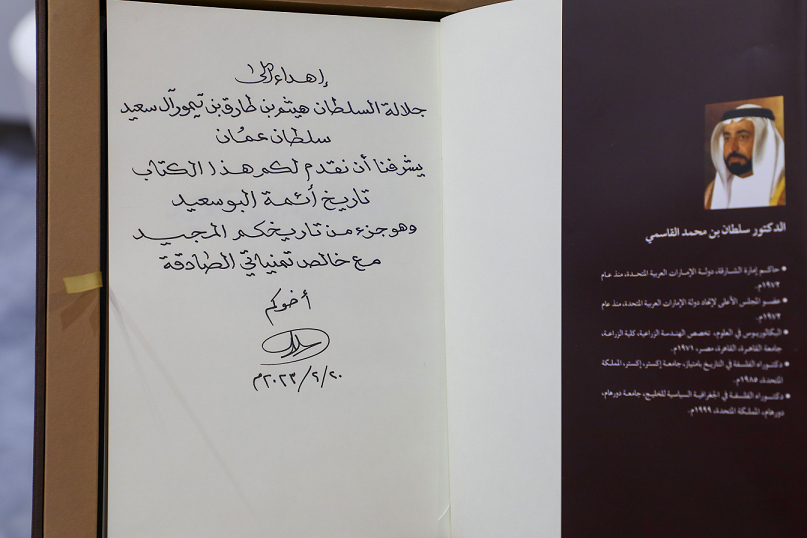 إهداء إلى
جلالة السلطان هيثم بن طارق بن تيمور آل سعيد
سلطان عمان
يشرفنا أن نقدم لكم هذا الكتاب
تاريخ أئمة البوسعيد
وهو جزء من تاريخكم المجيد
مع خالص تمنياتي الصادقة
أخوكم
٢٠٢٣/٢/٢٠م
الدكتور سلطان بن محمد القاسمي
● حاكم إمارة الشارقة، دولة الإمارات العربية المتحدة، منذ عام
١٩٧٢م.
● عضو المجلس الأعلى لإتحاد دولة الإمارات العربية المتحدة، منذ عام
١٩٧٢م.
● البكالوريوس في العلوم، تخصص الهندسة الزراعية، كلية الزراعة،
جامعة القاهرة، القاهرة، مصر، ١٩٧١م.
● دكتوراه الفلسفة في التاريخ بامتياز، جامعة إكستر، إكستر، المملكة
المتحدة، ١٩٨٥م.
● دكتوراه الفلسفة في الجغرافية السياسية للخليج، جامعة دورهام،
دورهام، المملكة المتحدة، ١٩٩٩م.